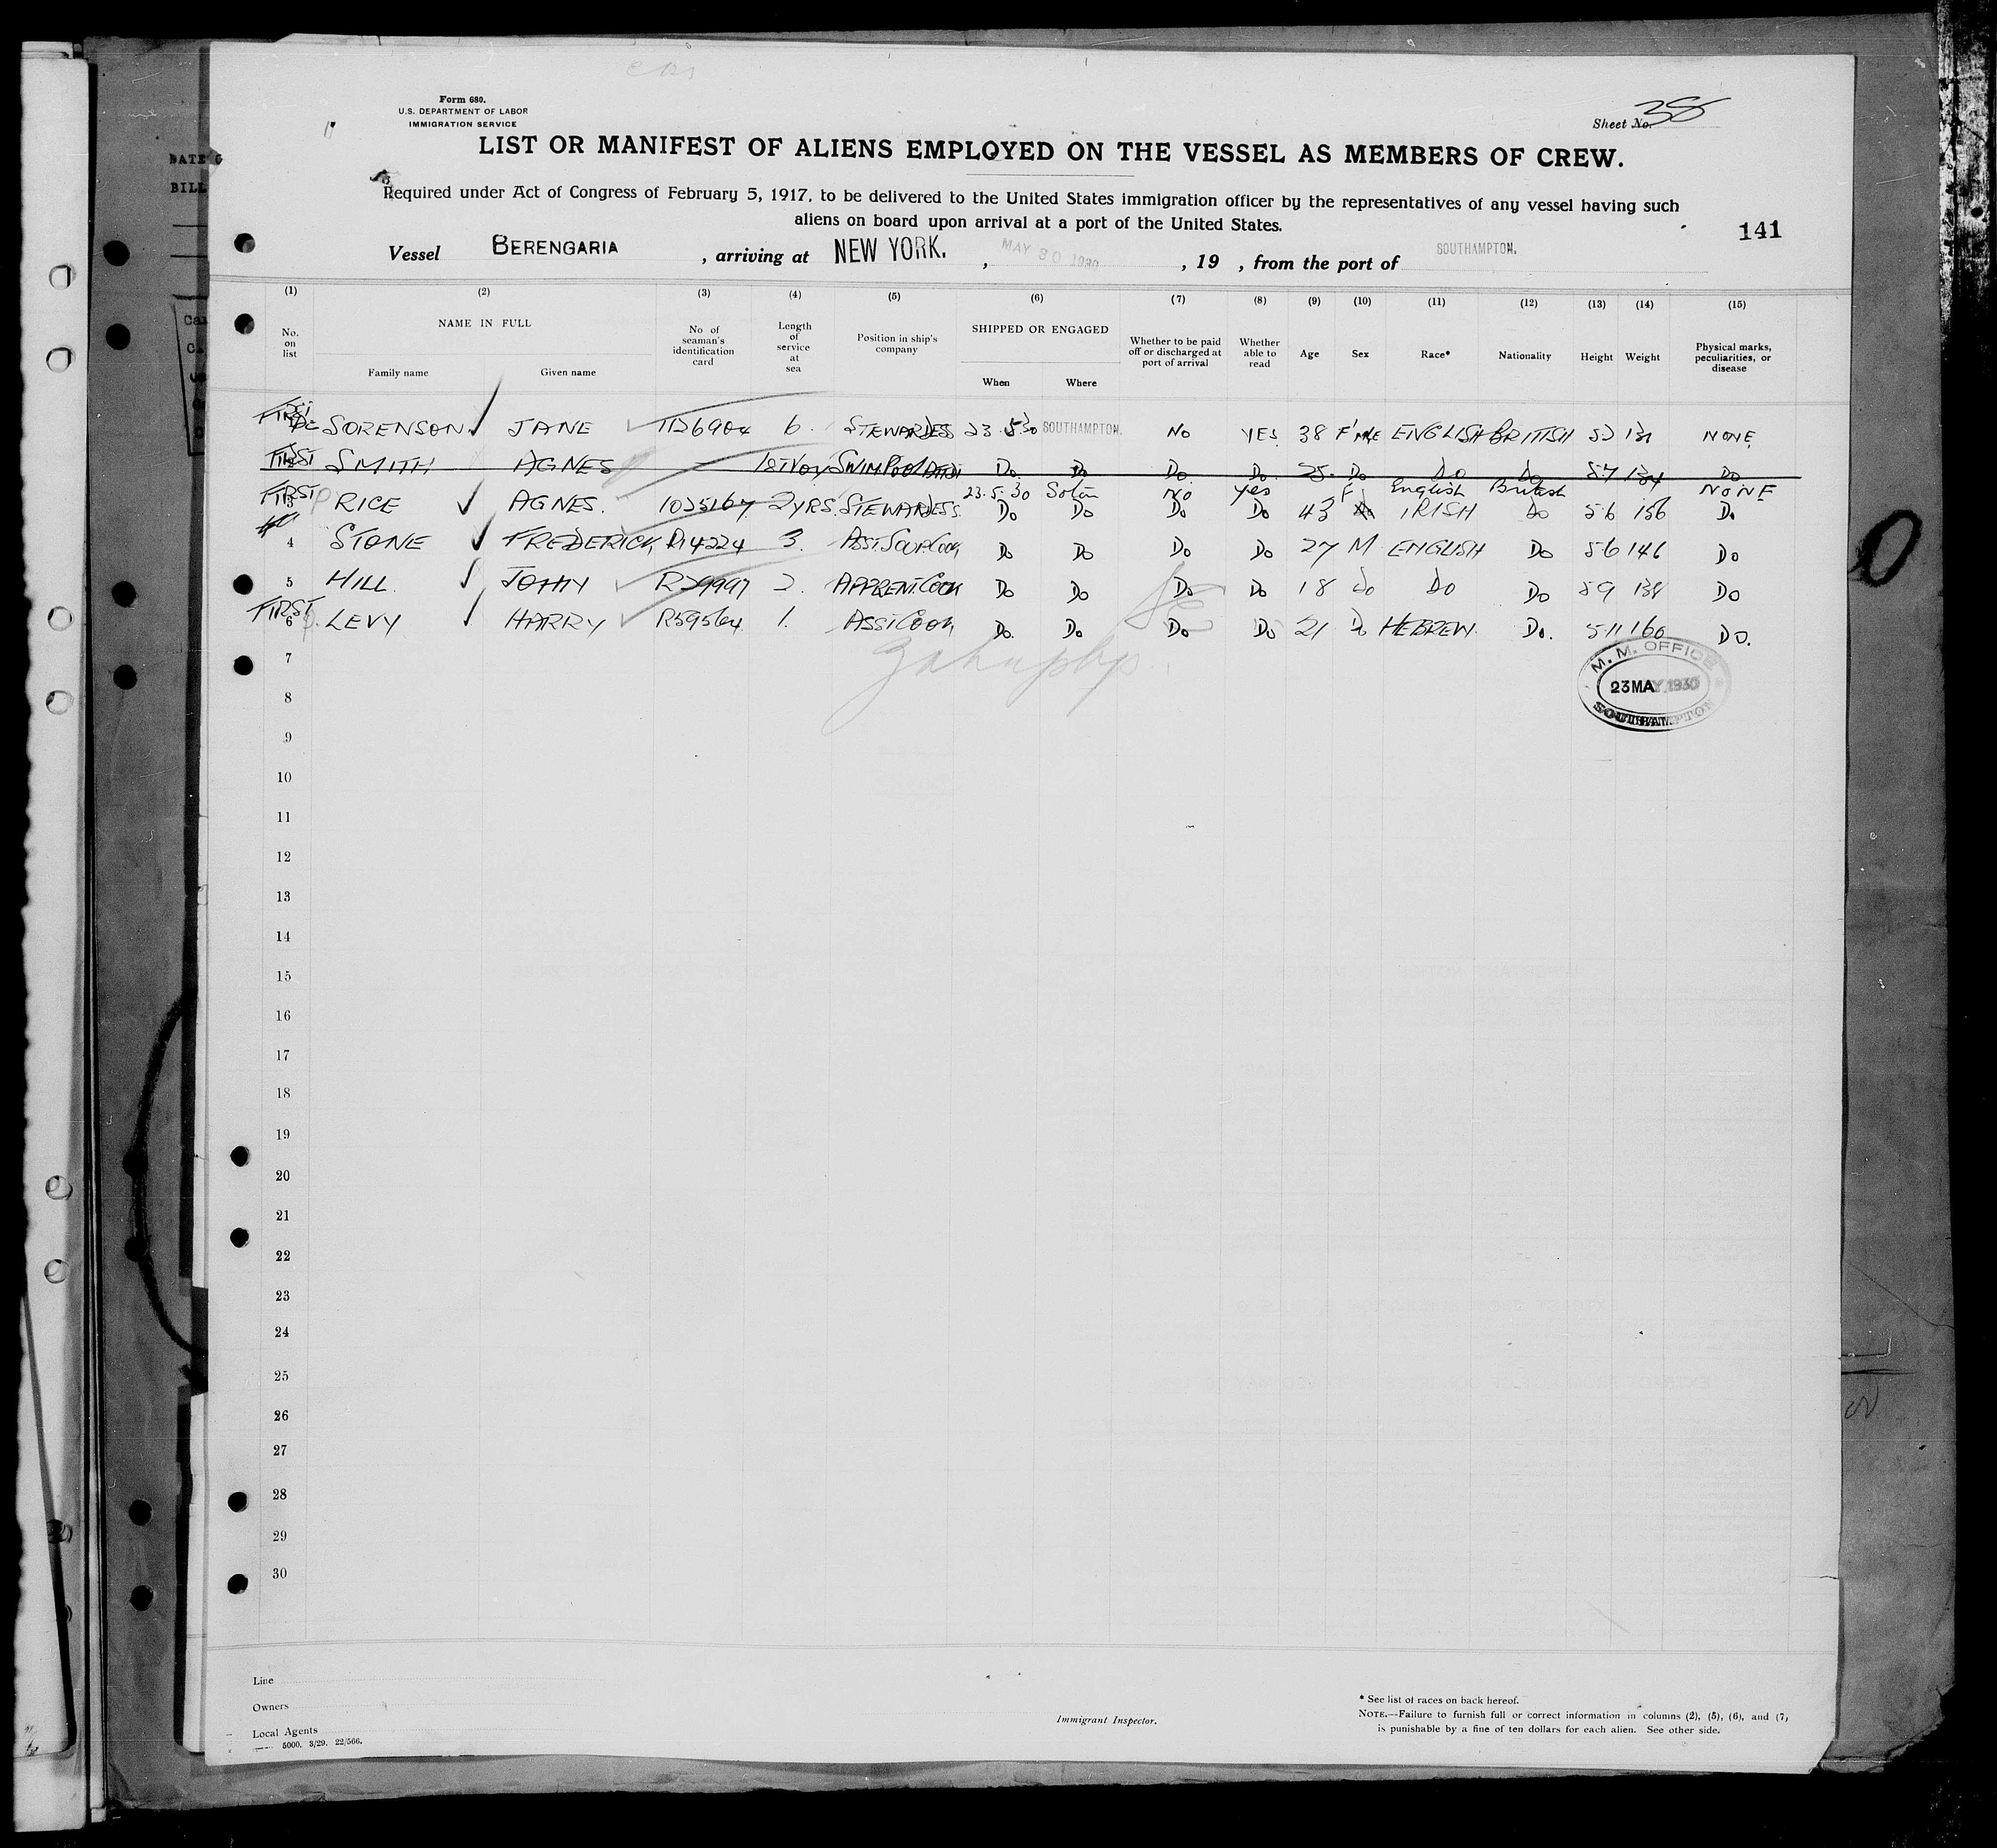 Form 680.
U.S. DEPARTMENT OF LABOR
IMMIGRATION SERVICE
Sheet No. 35
LIST OR MANIFEST OF ALIENS EMPLOYED ON THE VESSEL AS MEMBERS OF CREW.
Required under Act of Congress of February 5, 1917, to be delivered to the United States immigration officer by the representatives of any vessel having such
aliens on board upon arrival at a port of the United States.
141
Vessel BERENGARIA , arriving at NEW YORK. , MAY 30 1930 , 19 , from the port of SOUTHAMPTON.
(1) (2) (3) (4) (5) (6) (7) (8) (9) (10) (11) (12) (13) (14) (15)
No. on list NAME IN FULL Family name Given name No of seaman's identification card Length of service at sea Position in ship's company SHIPPED OR ENGAGED When Where Whether to be paid off or discharged at port of arrival Whether able to read Age Sex Race* Nationality Height Weight Physical marks, peculiarities, or disease
FIRST SORENSON JANE 1126904 6. STEWARDESS 23.5.30 SOUTHAMPTON. NO YES 38 F'MLE ENGLISH BRITISH NONE
FIRST SMITH AGNES 1STVOY Do. Do Do. Do. 25. Do Do Do 57 134 Do
23.5.30 Soton No Yes F English British NONE
FIRST 3 RICE AGNES. 1025167 2YRS. STEWARDESS. Do Do Do Do 43 IRISH Do 56 156 Do
4 STONE FREDERICK R14224 3. ASST SOUP COOK Do Do Do Do 27 M ENGLISH Do 56 146 Do
5 HILL. JOHN 2. APPRENT. COOK Do Do Do Do 18 Do Do Do 59 138 Do
FIRST 6 LEVY HARRY R59564 1. ASST COOK Do. Do Do Do 21 Do HEBREW. Do. 511 160 DO.
M. M. OFFICE
23 MAY 1930
SOUTHAMPTON
7
8
9
10
11
12
13
14
15
16
17
18
19
20
21
22
23
24
25
26
27
28
29
30
Line
Owners
Local Agents
5000. 3/29. 22/566.
Immigrant Inspector.
* See list of races on back hereof.
NOTE.—Failure to furnish full or correct information in columns (2), (5), (6), and (7)
is punishable by a fine of ten dollars for each alien. See other side.